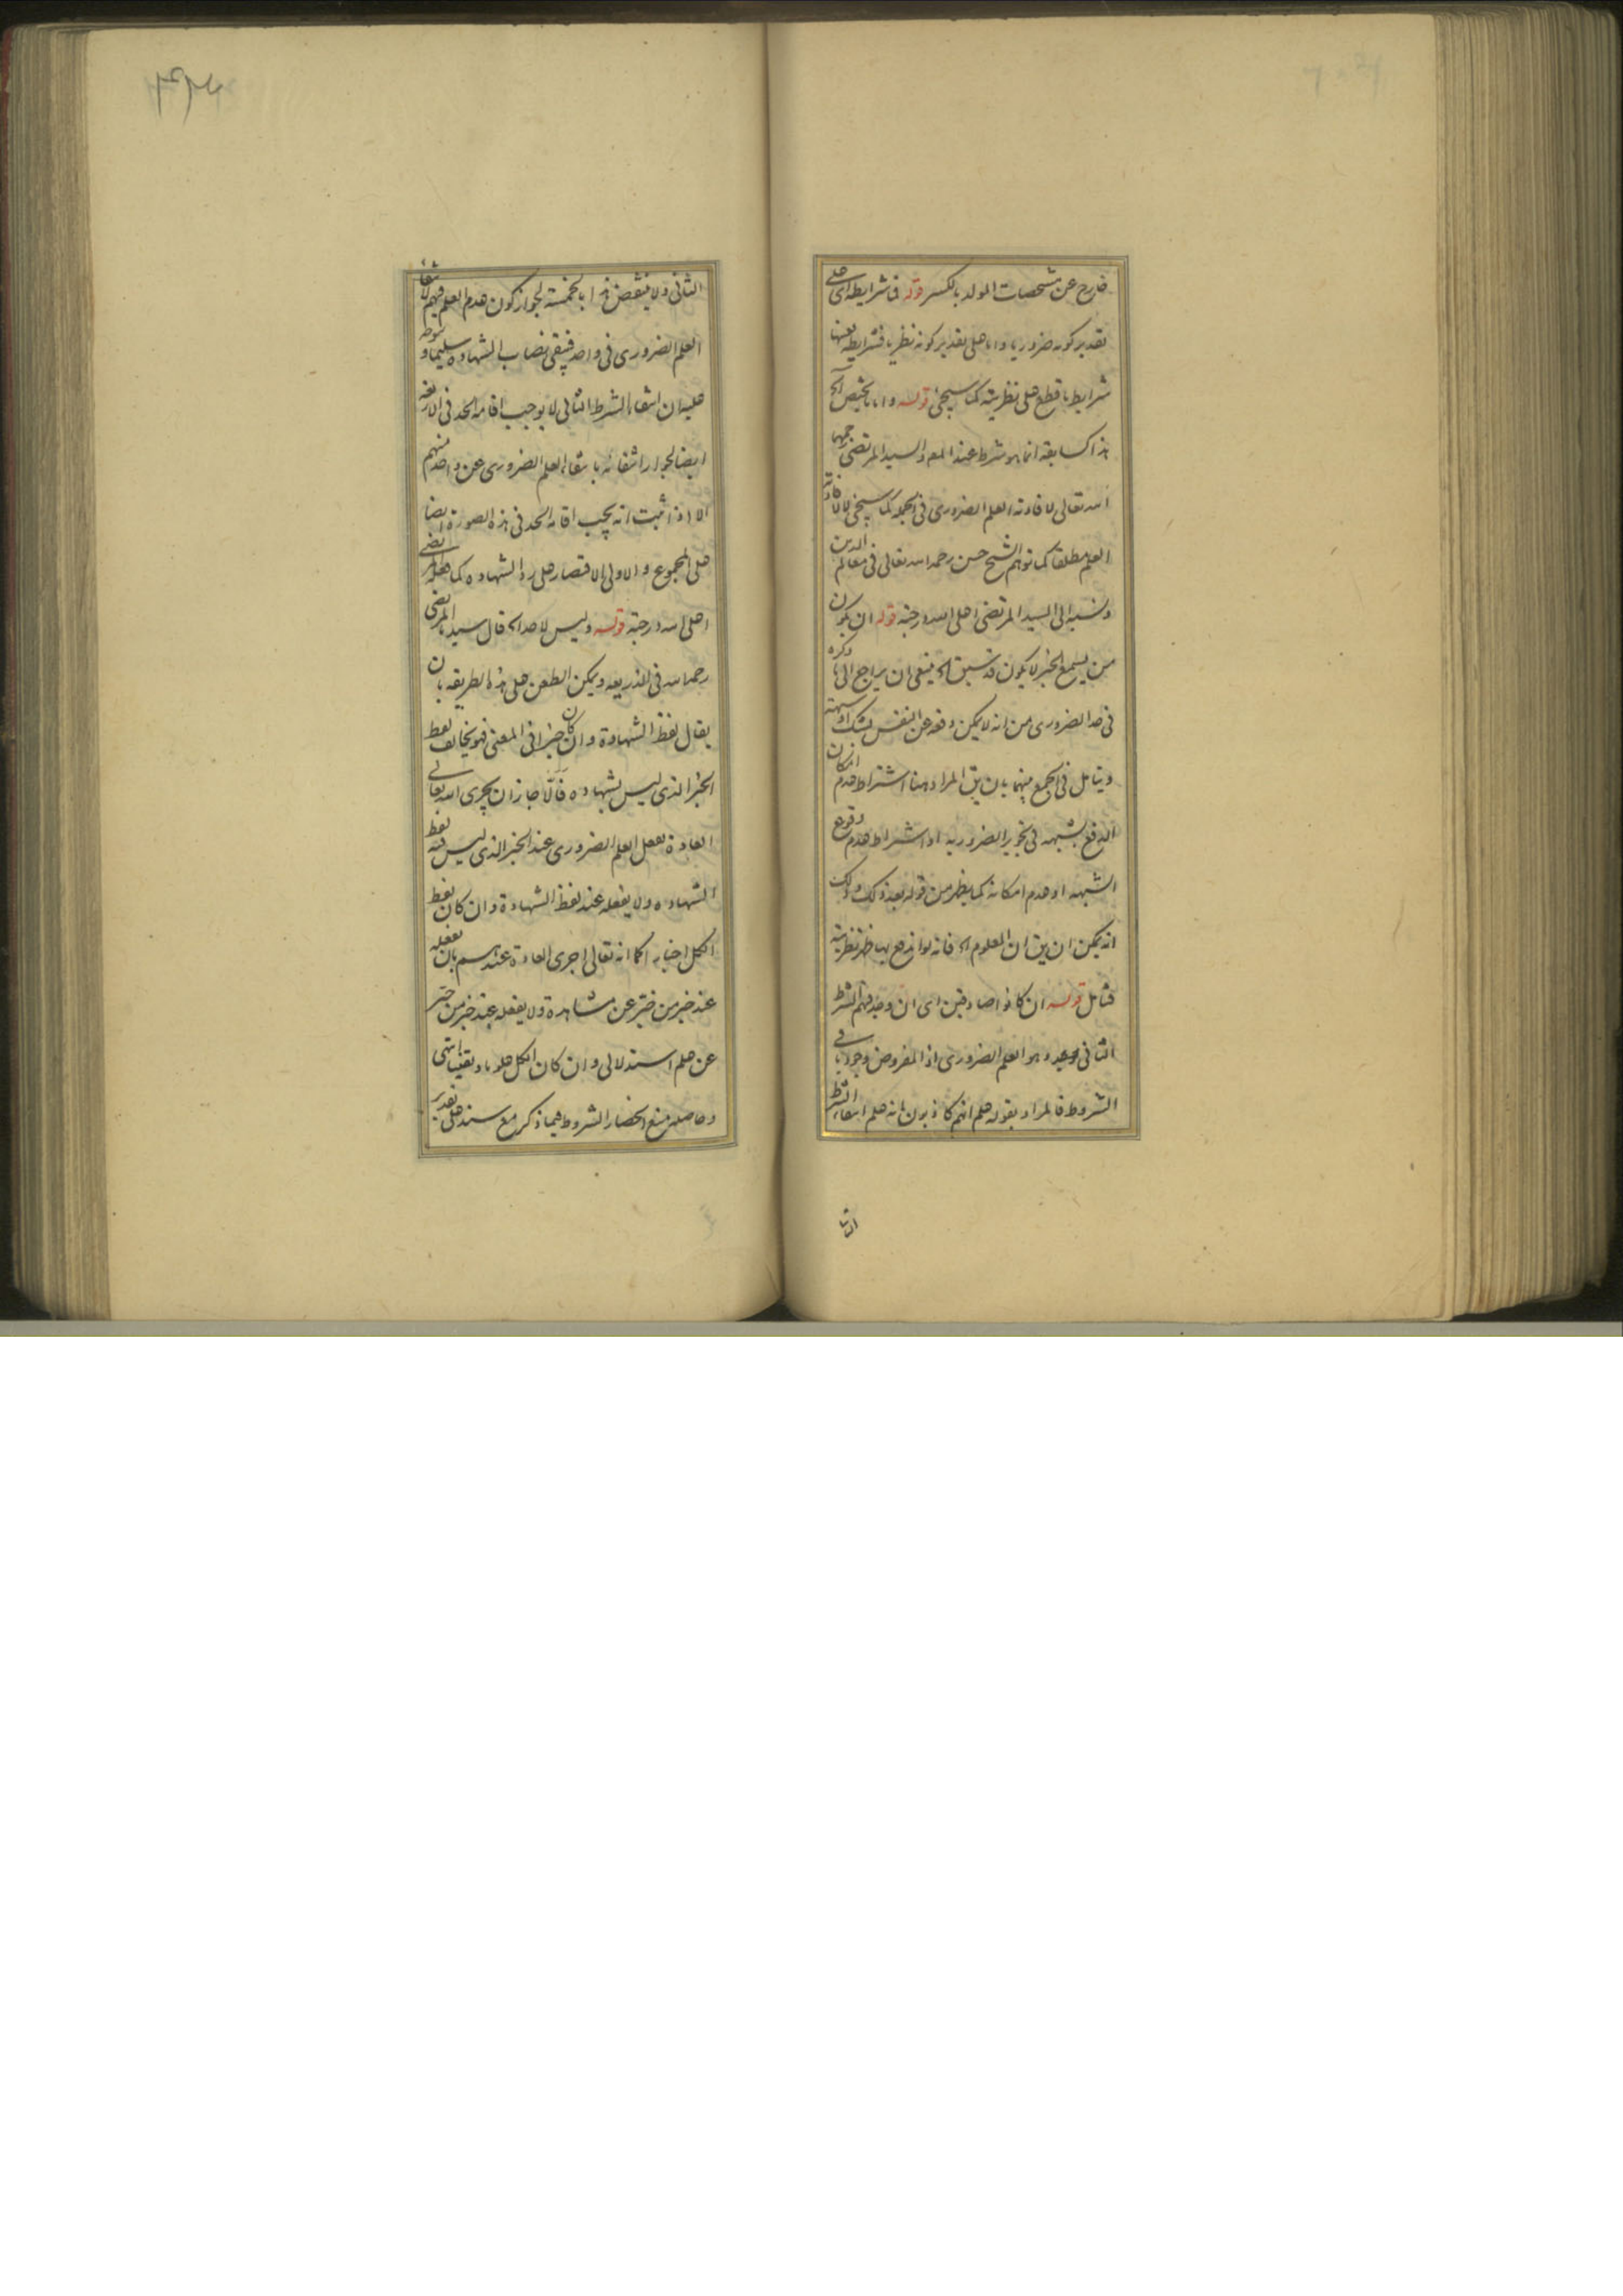 خارج عن مشخصات المولد بالكسر قوله فى شرايطه اى على
تقدير كونه ضروريا واما على تقدير كونه نظريا فشرايطه بعينها
شرايط ما قطع على نظريته كما سيجئ قوله واما ما يختص الخ
هذا كسابقه انما هو شرط عند المص والسيد المرتضى رحمهما
الله تعالى لافادته العلم الضرورى فى الجملة كما سيجئ لا لافادته
العلم مطلقا كما توهم الشيخ حسن رحمه الله تعالى فى معالم الدين
ونسبه الى السيد المرتضى اعلى الله درجته قوله ان يكون
من يسمع الخبر لا يكون قد سبق الخ ينبغى ان يراجع الى ما ذكره
فى حد الضرورى من انه لا يمكن دفعه عن النفس بشك او شبهة
ويتامل فى الجمع بينهما بان يق المراد هنا اشتراط عدم امكان
الدفع بشبهه فى تجويز الضروريه او اشتراط عدم وقوع
الشبهه او عدم امكانه كما يظهر من قوله بعد ذلك وذلك
انه يمكن ان يق ان المعلوم الخ فانه لو اندفع بها ظهر نظريته
فتامل قوله ان كانوا صادقين اى ان وجد فيهم الشرط
الثانى وحده وهو العلم الضرورى اذ المفروض وجود باقى
الشروط فالمراد بقوله علم انهم كاذبون انه علم انتفاء الشرط
الثا
الثانى ولا ينتقض هذا بالخمسة لجواز كون عدم العلم فيهم لانتفاء
العلم الضرورى فى واحد فيبقى نصاب الشهاده سليما ويتوجه
عليه ان انتفاء الشرط الثانى لا يوجب اقامة الحد فى الاربعة
ايضا لجواز انتفائه بانتفاء العلم الضرورى عن واحد منهم
الا اذا ثبت انه يجب اقامة الحد فى هذه الصورة ايضا
على المجموع والاولى الاقتصار على رد الشهاده كما فعله المرتضى
اعلى الله درجته قوله وليس لاحد الخ قال سيدنا المرتضى
رحمه الله فى الذريعه ويمكن الطعن على هذه الطريقه بان
يقال لفظ الشهادة وان كان خبرا فى المعنى فهو يخالف لفظ
الخبر الذى ليس بشهاده فالا جاز ان يجرى الله تعالى
العادة بفعل العلم الضرورى عند الخبر الذى ليس فيه لفظ
الشهاده ولا يفعله عند لفظ الشهادة وان كان لفظ
الكل اخبارا كما انه تعالى اجرى العادة عندهم بان يفعله
عند خبر من خبر عن مشاهدة ولا يفعله عند خبر من خبر
عن علم استدلالى وان كان الكل علوما ويقينا انتهى
وحاصله منع انحصار الشروط فيما ذكر مع سند على تقدير